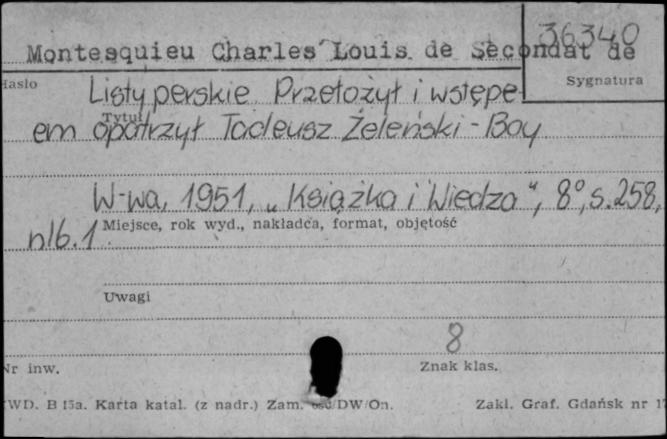 36340
Montesquieu Charles Louis de Secondat de
Hasło Sygnatura
Listy perskie. Przełożył i wstępe-
Tytuł
em opatrzył Tadeusz Żeleński-Boy
W-wa, 1951, „Książka i Wiedza", 8°, s. 258,
Miejsce, rok wyd., nakładca, format, objętość
nlb. 1
Uwagi
8
Nr inw. Znak klas.
WD. B 15a. Karta katal. (z nadr.) Zam. DW/On. Zakl. Graf. Gdańsk nr